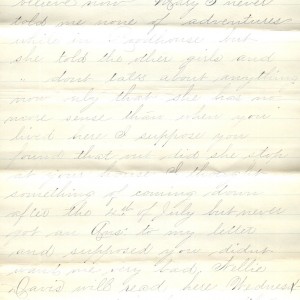 believe now Mary I never
told me none of "adventures
while in " but
she told the other girls and
I dont talk about anything
now only that she has no
more sense than when you
lived here I suppose you
found that out did she stop
at your house I thought
something of coming down
after the 4th of July but never
got an Ans' to my letter
and supposed you didnt
want me very bad. Nellie
Davis will read here Wednes